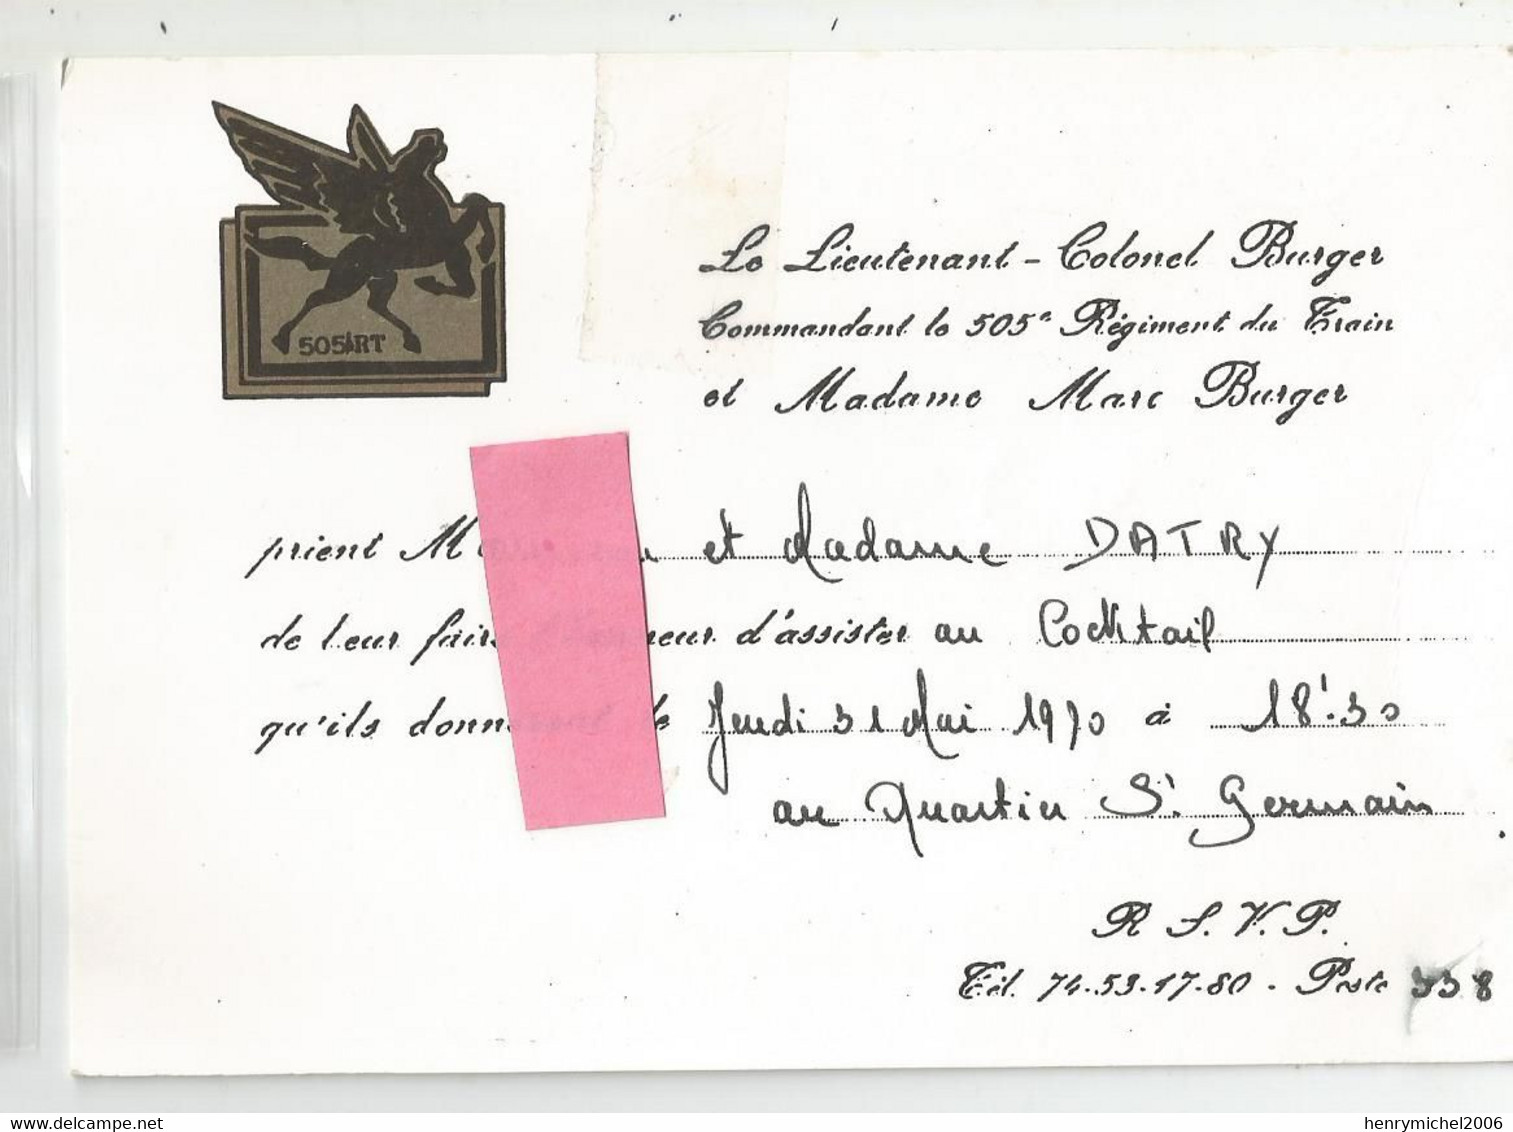 505 RT
Le Lieutenant - Colonel Burger
Commandant le 505e Régiment du Train
et Madame Marc Burger
prient M et Madame DATRY
de leur faire d'assister au Cocktail
qu'ils le Jeudi 31 Mai 1970 à 18h30
au Quartier St Germain
R. S. V. P.
Tél. 74.53.17.80 - Poste 338
henrymichel2006